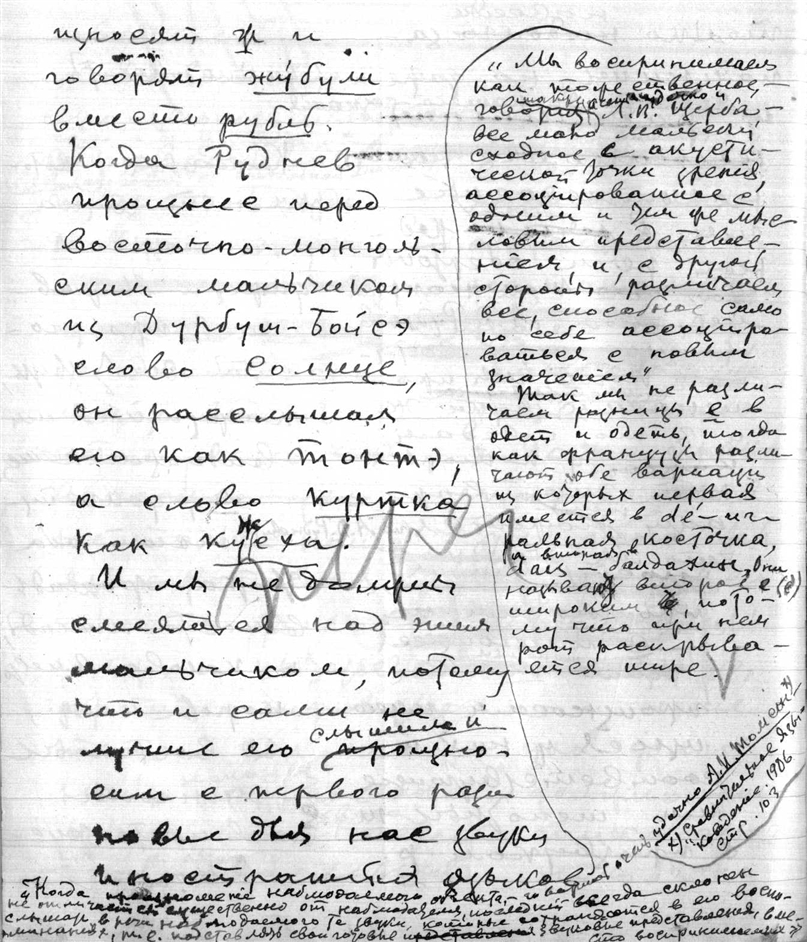 износят ж и
говорят жубули
вместо рубль.
Когда Руднев
произнес перед
восточно-монголь-
ским мальчиком
из Дурбут-Бойсэ
слово солнце,
он расслышал
его как тонтэ,
а слово куртка
как
И мы не должны
смеяться над этим
мальчиком, потому
что и сами не
слышим и
лучше его произно-
сим с первого раза
новые для нас звуки
иностранных языков
„Мы воспринимаем
как тожественное,—
говорит Л.В. Щерба,—
все мало мальски
сходное с акусти-
ческой точки зрения,
ассоциированное с
одним и тем же смыс-
ловым представле-
нием, и, с другой
стороны, различаем
все, способное само
по себе ассоцииро-
ваться с новым
значением“
Так мы не разли-
чаем разницы е в
одет и одеть, тогда
как французы разли-
чают обе вариации
из которых первая
имеется в dé — иг-
ральная косточка,
а вторая в
dais — балдахин. Они
называют второе е (è)
широким, пото-
му что при нем
рот раскрыва-
ется шире.
удачно А.И. Томсон
x) „Сравнительное язы-
коведение“. 1906
стр. 103
„Когда произношение наблюдаемого объекта, — говорит очень
не отличается существенно от наблюдателя, последний всегда склонен
слышать в речи наблюдаемого те звуки, которые сохраняются в его воспо-
минаниях, т.е. подставлять свои готовые звуковые представления, вме-
сто воспринимаемых“